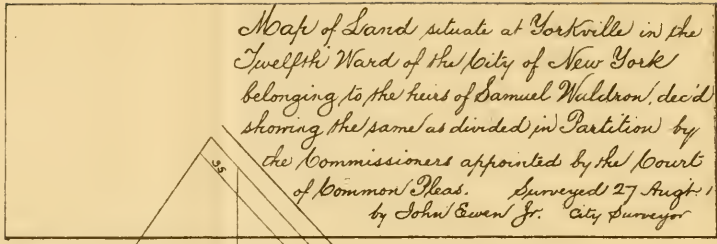 Map of Land situate at Yorkville in the
Twelfth Ward of the City of New York
belonging to the heirs of Samuel Waldron, dec'd
showing the same as divided in Partition by
the Commissioners appointed by the Court
of Common Pleas. Surveyed 27 Augt. 1
by John Ewen Jr. City Surveyor
35